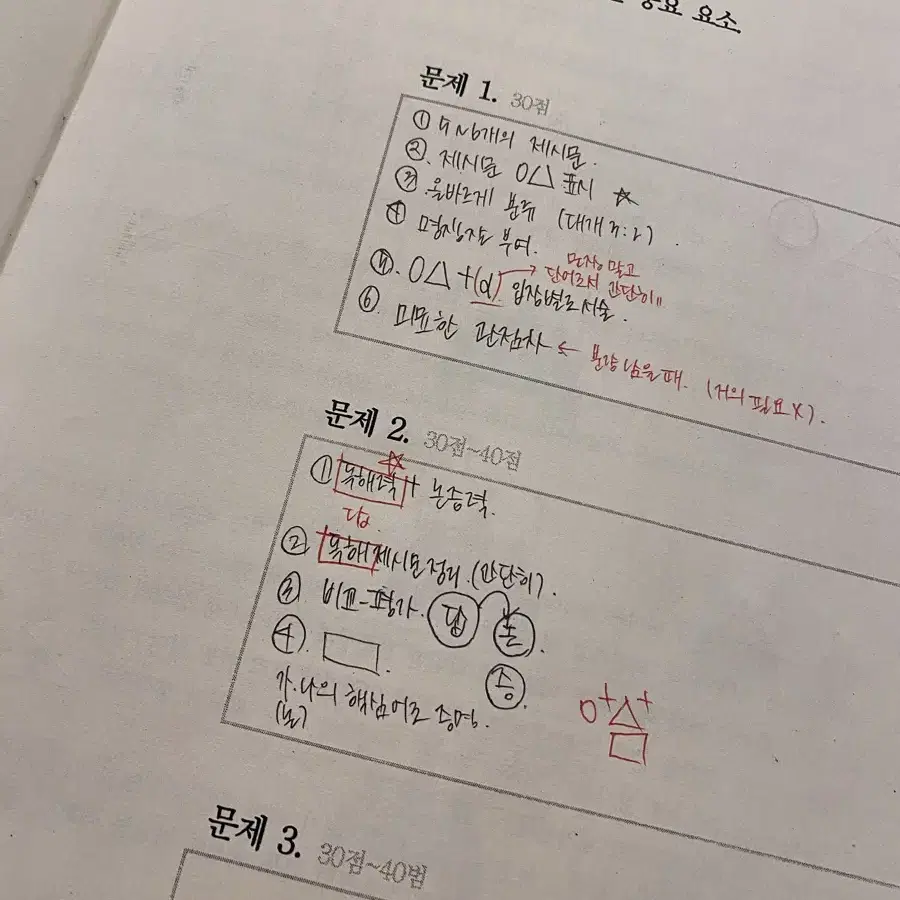 중요 요소.
문제 1. 30점
① 5~6개의 제시문.
② 제시문 O△ 표시 ☆
③ 올바르게 분류 (대개 3:2).
④ 명시성자 부여.
문장 말고
단어로서 간단히!!
⑤. O△ +(α) 입장별로 서술.
⑥. 미묘한 관점차 ← 분량 남을 때. (거의 필요X).
문제 2. 30점~40점
① 독해력 + 논증력.
답.
② 독해 제시문 정리. (간단히).
③ 비교-평가. 답 논.
④. □. 증.
가.나의 핵심어로 증명.
(논)
O+△+
□
문제 3. 30점~40범